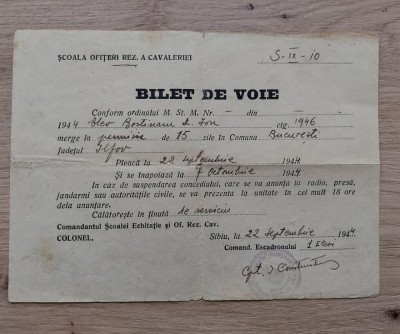 ȘCOALA OFIȚERI REZ. A CAVALERIEI
S-IX-10
BILET DE VOIE
Conform ordinului M. St. M. Nr. — din —
1944 Elev Bostinaru I. Ion ctg. 1946
merge în permisie de 15 zile în Comuna București
Județul Ilfov
Pleacă la 22 septembrie 1944
Și se înapoiază la 7 Octombrie 1944
In caz de suspendarea concediului, care se va anunța la radio, presă,
jandarmi sau autoritățile civile, se va prezenta la unitate în cel mult 18 ore
dela anunțare.
Călătorește în ținută de serviciu
Comandantul Școalei Echitație și Of. Rez. Cav.
COLONEL,
Sibiu, la 22 Septembrie 1944
Comand. Escadronului 1 Elevi
Cpt. I